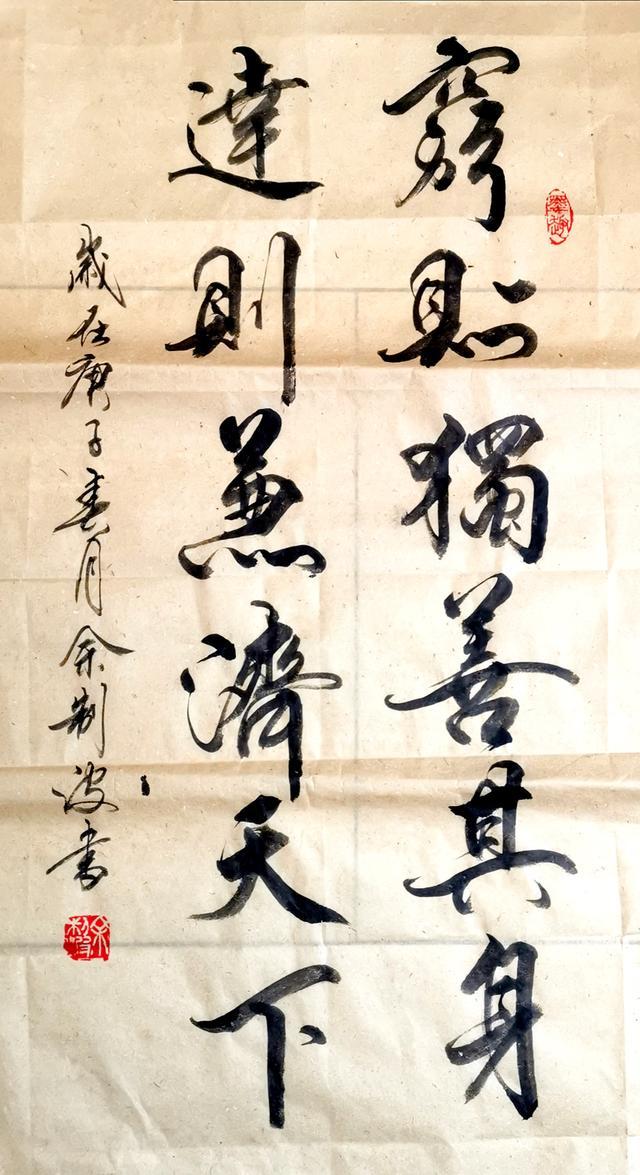 窮則獨善其身
達則兼濟天下
歲在庚子春月余制波書